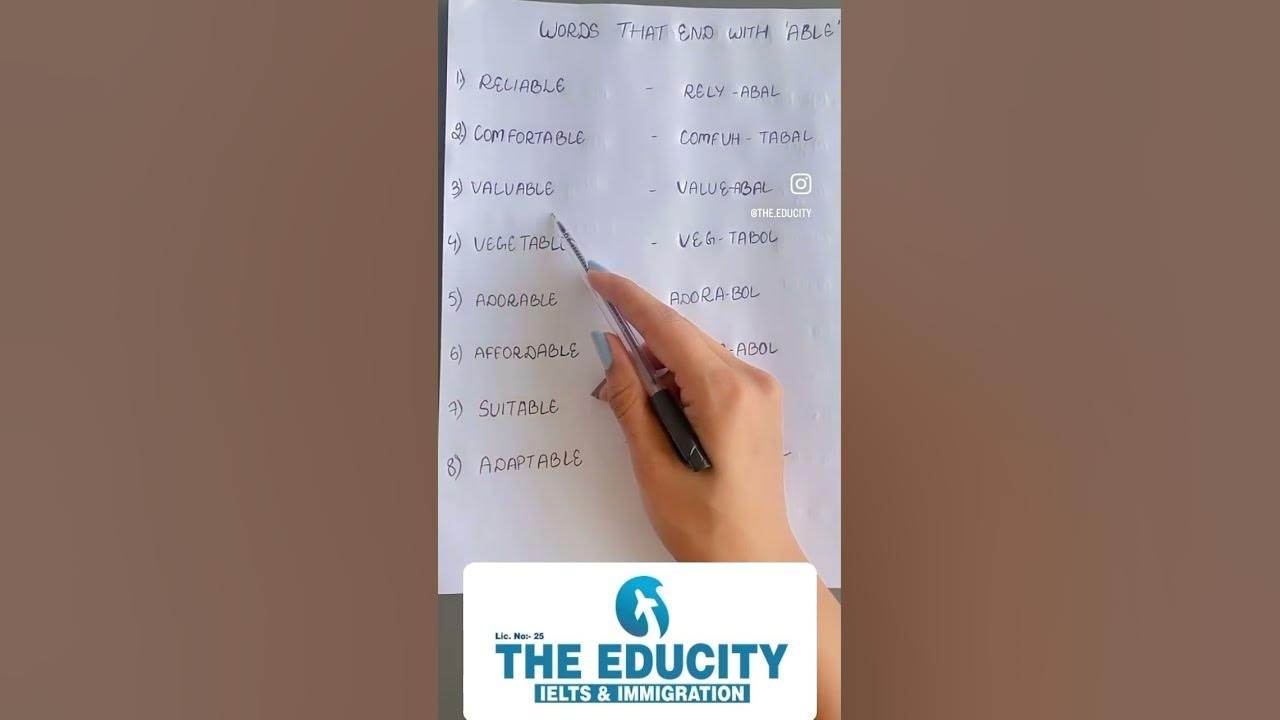 WORDS THAT END WITH 'ABLE'
1) RELIABLE - RELY-ABAL
2) COMFORTABLE - COMFUH-TABAL
3) VALUABLE - VALUE-ABAL
@THE.EDUCITY
4) VEGETABLE - VEG-TABOL
5) ADORABLE ADORA-BOL
6) AFFORDABLE -ABOL
7) SUITABLE
8) ADAPTABLE
Lic. No:- 25
THE EDUCITY
IELTS & IMMIGRATION